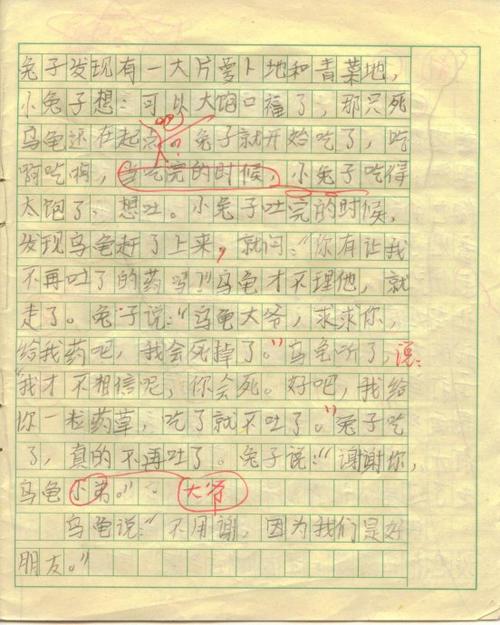 兔子发现有一大片萝卜地和青菜地，
小兔子想：可以大饱口福了，那只死
乌龟还在起点吧？兔子就开始吃了，吃
啊吃啊，当吃完的时候，小兔子吃得
太饱了，想吐。小兔子吐完的时候，
发现乌龟赶了上来，就问：“你有让我
不再吐了的药吗？”乌龟才不理他，就
走了。兔子说：“乌龟大爷，求求你，
给我药吧，我会死掉了。”乌龟听了，说：
“我才不相信呢，你会死。好吧，我给
你一粒药草，吃了就不吐了。”兔子吃
了，真的不再吐了。兔子说：“谢谢你，
乌龟小弟。” 大爷
乌龟说：“不用谢，因为我们是好
朋友。”